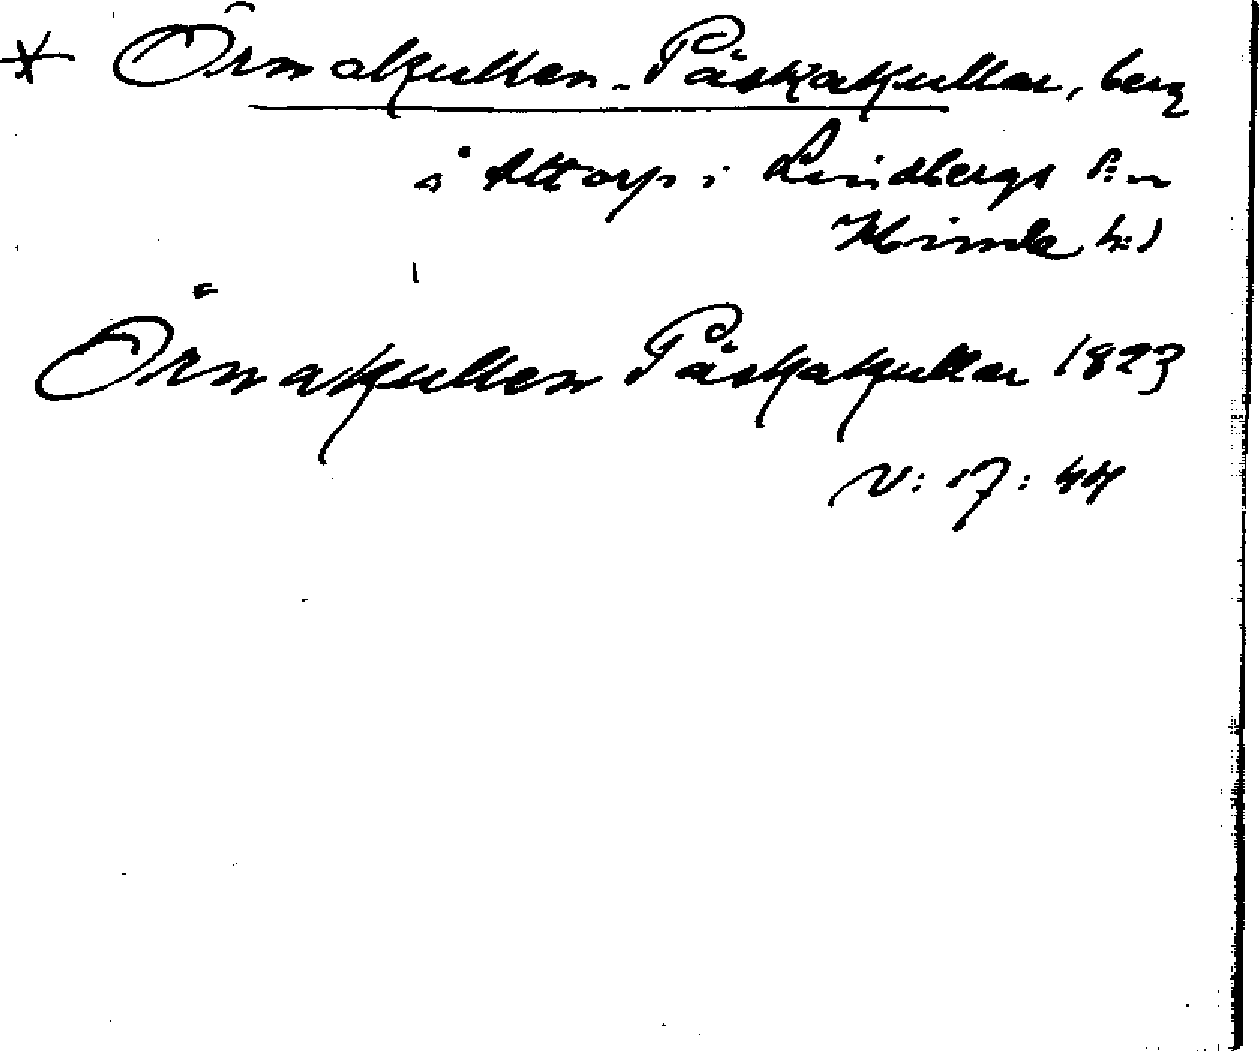 * Örmakullen-Påskakullar, berg
i Attorp i Lindbergs s:n
Himle h:d
Örmakullen Påskakullar 1823
V: 17: 44